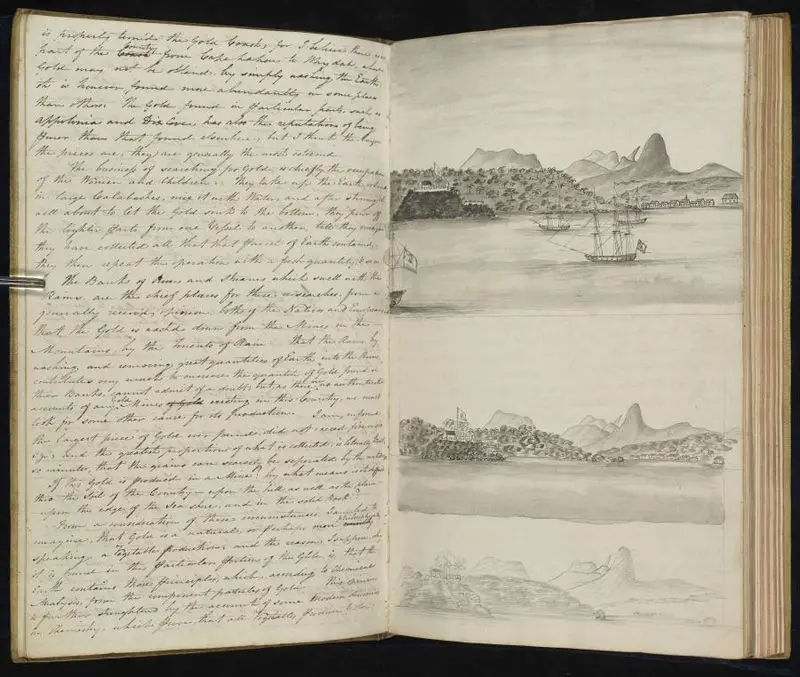 is properly termed the Gold Coast, for I believe there is no
part of the County from Cape Lahou to Whydah, where
Gold may not be obtained by simply washing the Earth
it is however found more abundantly in some places
than others. The Gold found in particular parts, such as
Appolonia and Dixcove has also the reputation of being
finer than that found elsewhere, but I think the larger
the pieces are, they are generally the most esteemed.
The business of searching for Gold is chiefly the occupation
of the Women and Children. They take up the Earth
in large Calabashes, mix it with Water, and after stirring it
well about to let the Gold sink to the bottom, they pour off
the lighter parts from one Vessel to another, till they
they have collected all that that Parcel of Earth contained
they then repeat the operation with a fresh quantity, &
The Banks of Rivers and Streams which swell with the
Rains, are the chief places for these researches, from a
generally received opinion, both of the Natives and Europeans
that the Gold is washed down from the Mines in the
Mountains, by the Torrents of Rain. That the Rains by
washing and removing great quantities of Earth into the Rivers
contributes very much to increase the quantity of Gold found in
their Banks, cannot admit of a doubt; but as there are no authenticated
accounts of any Gold Mines of Gold existing in this Country, we must
look for some other cause for its production. I am informed
the largest piece of Gold ever found did not exceed
and the greatest proportion of what is collected, is
so minute, that the grains can scarcely be seperated by the
If this Gold is produced in a Mine? by what means is it
thro the Soil of the Country – upon the hill as well as the plain –
upon the edge of the Sea shore, and in the solid Rock?
From a consideration of these circumstances I am led to
imagine, that Gold is a natural, or perhaps more philosophically
speaking a Vegetable production, and the reason I suppose why
it is found in this particular portion of the Globe is, that the
Earth contains those principles, which according to chemical
Analysis, form the component particles of Gold. This opinion
is further strengthened by the accounts of some modern
in Chemistry, which prove that all Vegetables produce